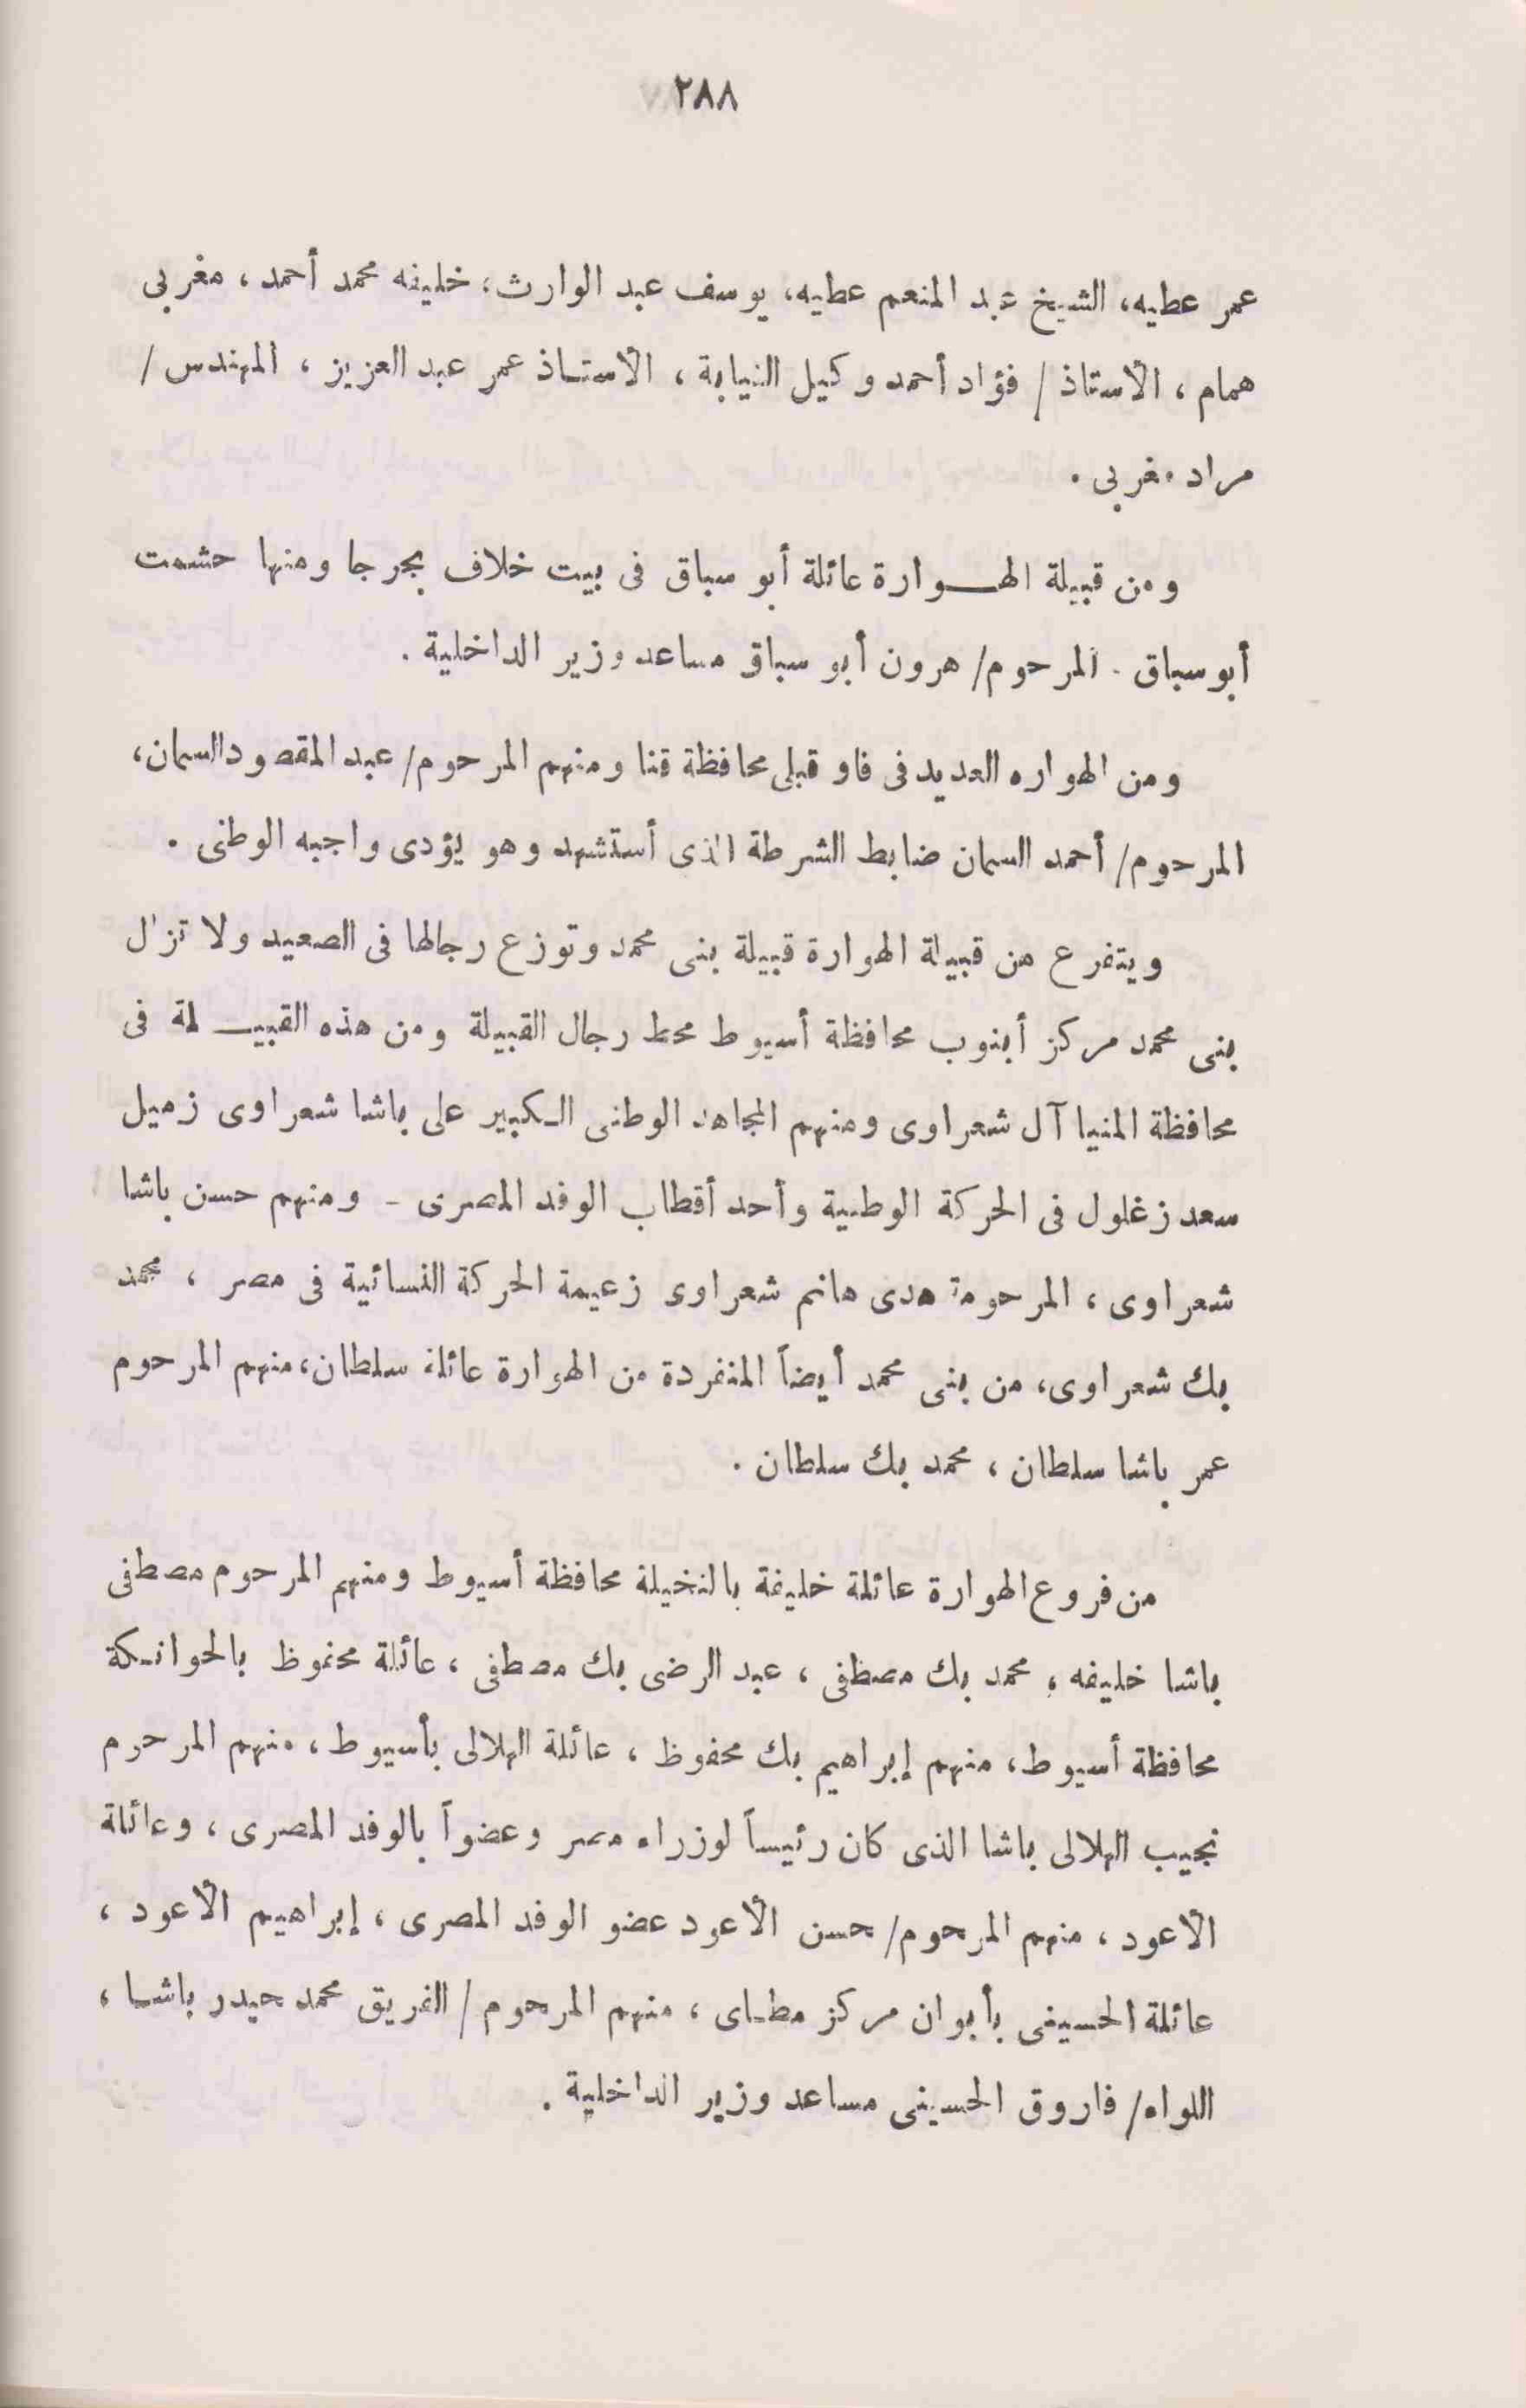 ٢٨٨
عمر عطيه، الشيخ عبد المنعم عطيه، يوسف عبد الوارث، خليفه محمد أحمد ، مغربى
همام ، الأستاذ / فؤاد أحمد وكيل النيابة ، الأستاذ عمر عبد العزيز ، المهندس /
مراد مغربى .
ومن قبيلة الهوارة عائلة أبو سباق فى بيت خلاف بجرجا ومنها حشمت
أبو سباق - المرحوم/ هرون أبو سباق مساعد وزير الداخلية .
ومن الهواره العديد فى فاو قبلى محافظة قنا ومنهم المرحوم/ عبد المقصود السمان،
المرحوم/ أحمد السمان ضابط الشرطة الذى أستشهد وهو يؤدى واجبه الوطنى .
ويتفرع من قبيلة الهوارة قبيلة بنى محمد وتوزع رجالها فى الصعيد ولا تزال
بنى محمد مركز أبنوب محافظة أسيوط محط رجال القبيلة ومن هذه القبيلة فى
محافظة المنيا آل شعراوى ومنهم المجاهد الوطنى الكبير على باشا شعراوى زميل
سعد زغلول فى الحركة الوطنية وأحد أقطاب الوفد المصرى - ومنهم حسن باشا
شعراوى ، المرحومة هدى هانم شعراوى زعيمة الحركة النسائية فى مصر ، محمد
بك شعراوى، من بنى محمد أيضاً المنفردة من الهوارة عائلة سلطان، منهم المرحوم
عمر باشا سلطان ، محمد بك سلطان .
من فروع الهوارة عائلة خليفة بالنخيلة محافظة أسيوط ومنهم المرحوم مصطفى
باشا خليفه ، محمد بك مصطفى ، عبد الرضى بك مصطفى ، عائلة محفوظ بالحواتكة
محافظة أسيوط، منهم إبراهيم بك محفوظ ، عائلة الهلالى بأسيوط ، منهم المرحوم
نجيب الهلالى باشا الذى كان رئيساً لوزراء مصر وعضواً بالوفد المصرى ، وعائلة
الأعود ، منهم المرحوم/ حسن الأعود عضو الوفد المصرى ، إبراهيم الأعود ،
عائلة الحسينى بأبوان مركز مطاى ، منهم المرحوم / الفريق محمد حيدر باشا ،
اللواء/ فاروق الحسينى مساعد وزير الداخلية .